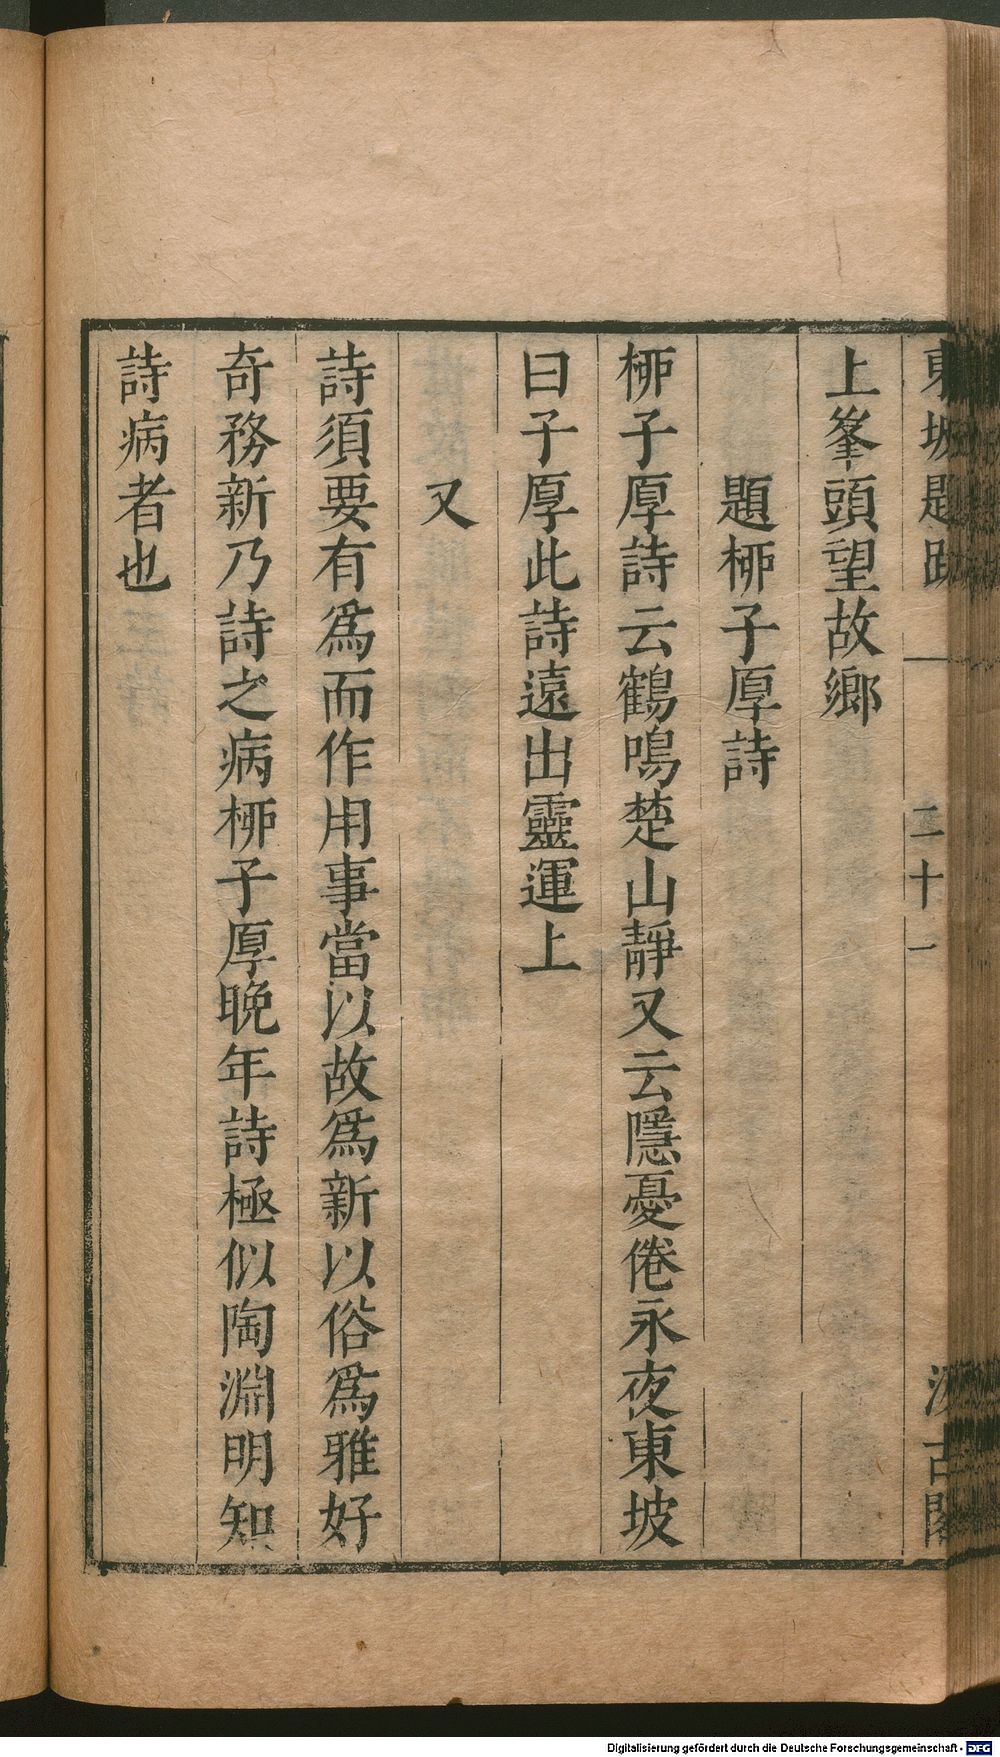 東坡題跋 二十一 汲古閣
上峯頭望故鄉
題柳子厚詩
柳子厚詩云鶴鳴楚山靜又云隱憂倦永夜東坡
曰子厚此詩遠出靈運上
又
詩須要有爲而作用事當以故爲新以俗爲雅好
奇務新乃詩之病柳子厚晚年詩極似陶淵明知
詩病者也
Digitalisierung gefördert durch die Deutsche Forschungsgemeinschaft - DFG